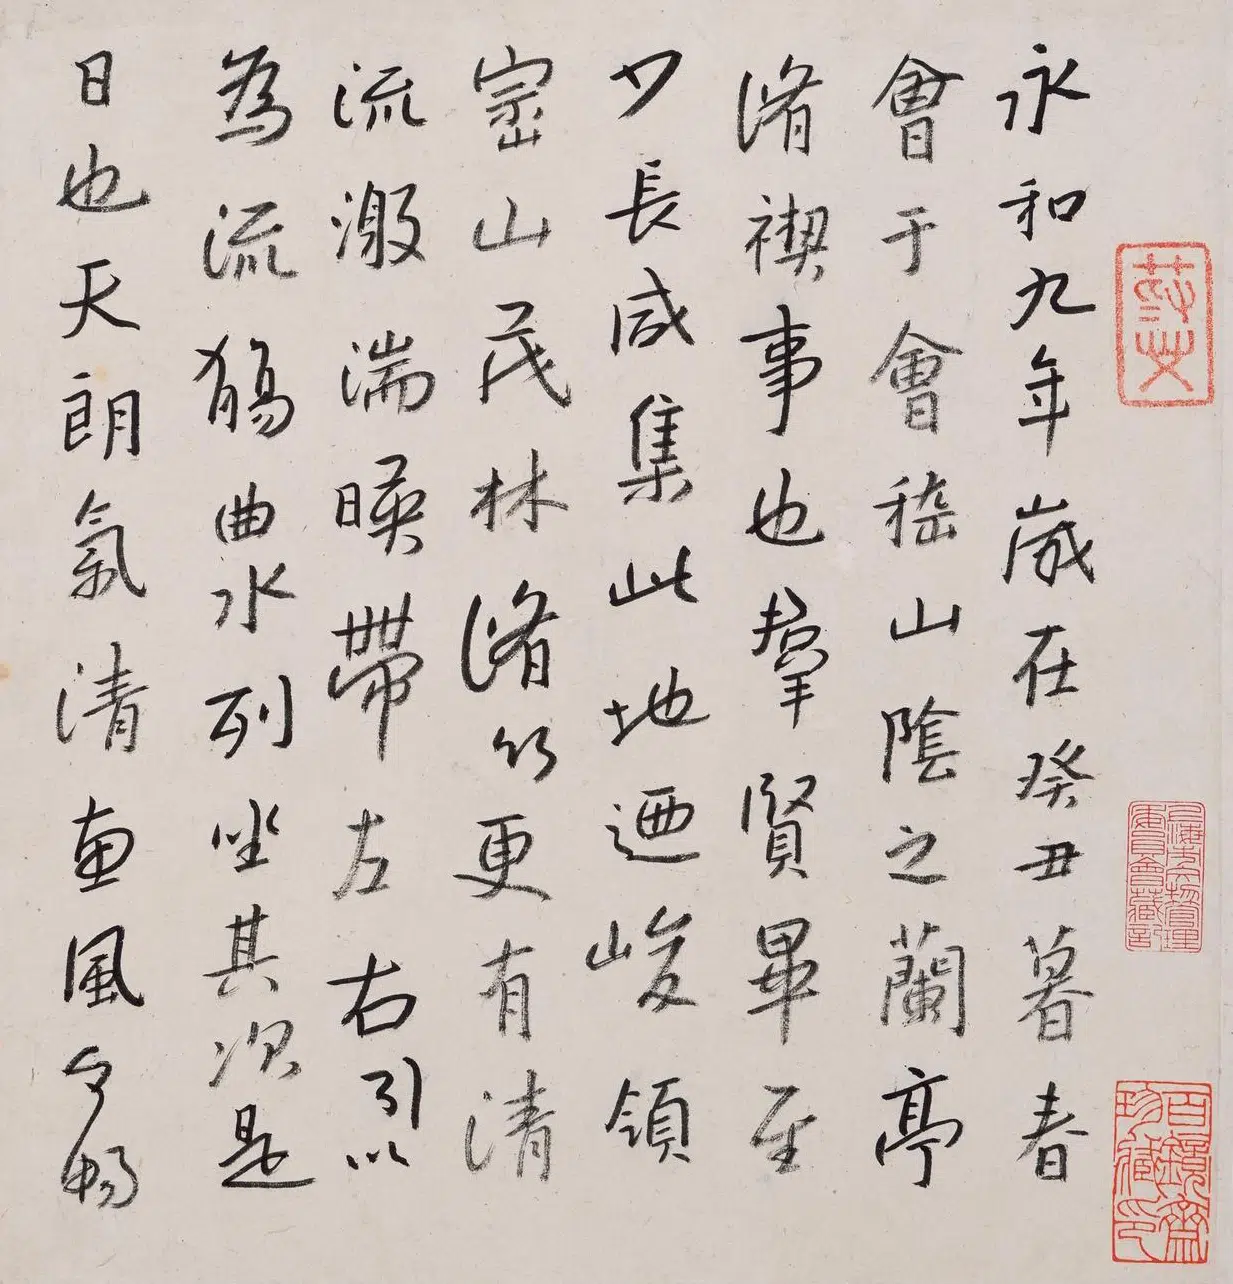 永和九年歲在癸丑暮春
會于會稽山陰之蘭亭
脩禊事也羣賢畢至
少長咸集此地迺峻領
崈山茂林脩竹更有清
流激湍暎帶左右引以
為流觴曲水列坐其次是
日也天朗氣清惠風和暢
百鏡齋
珍藏印